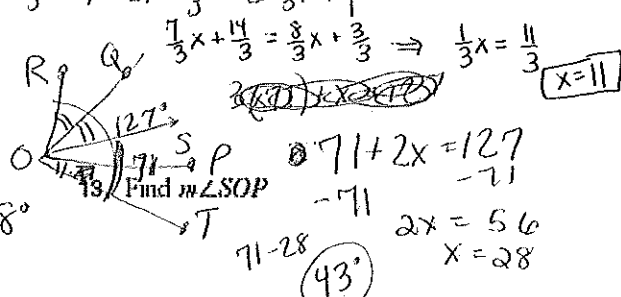 7/3 x + 14/3 = 8/3 x + 3/3 ⇒ 1/3 x = 11/3
x = 11
R Q
127°
O 71 S P
13. Find m∠SOP
T
8°
71 + 2x = 127
-71 -71
2x = 56
x = 28
71-28
43°